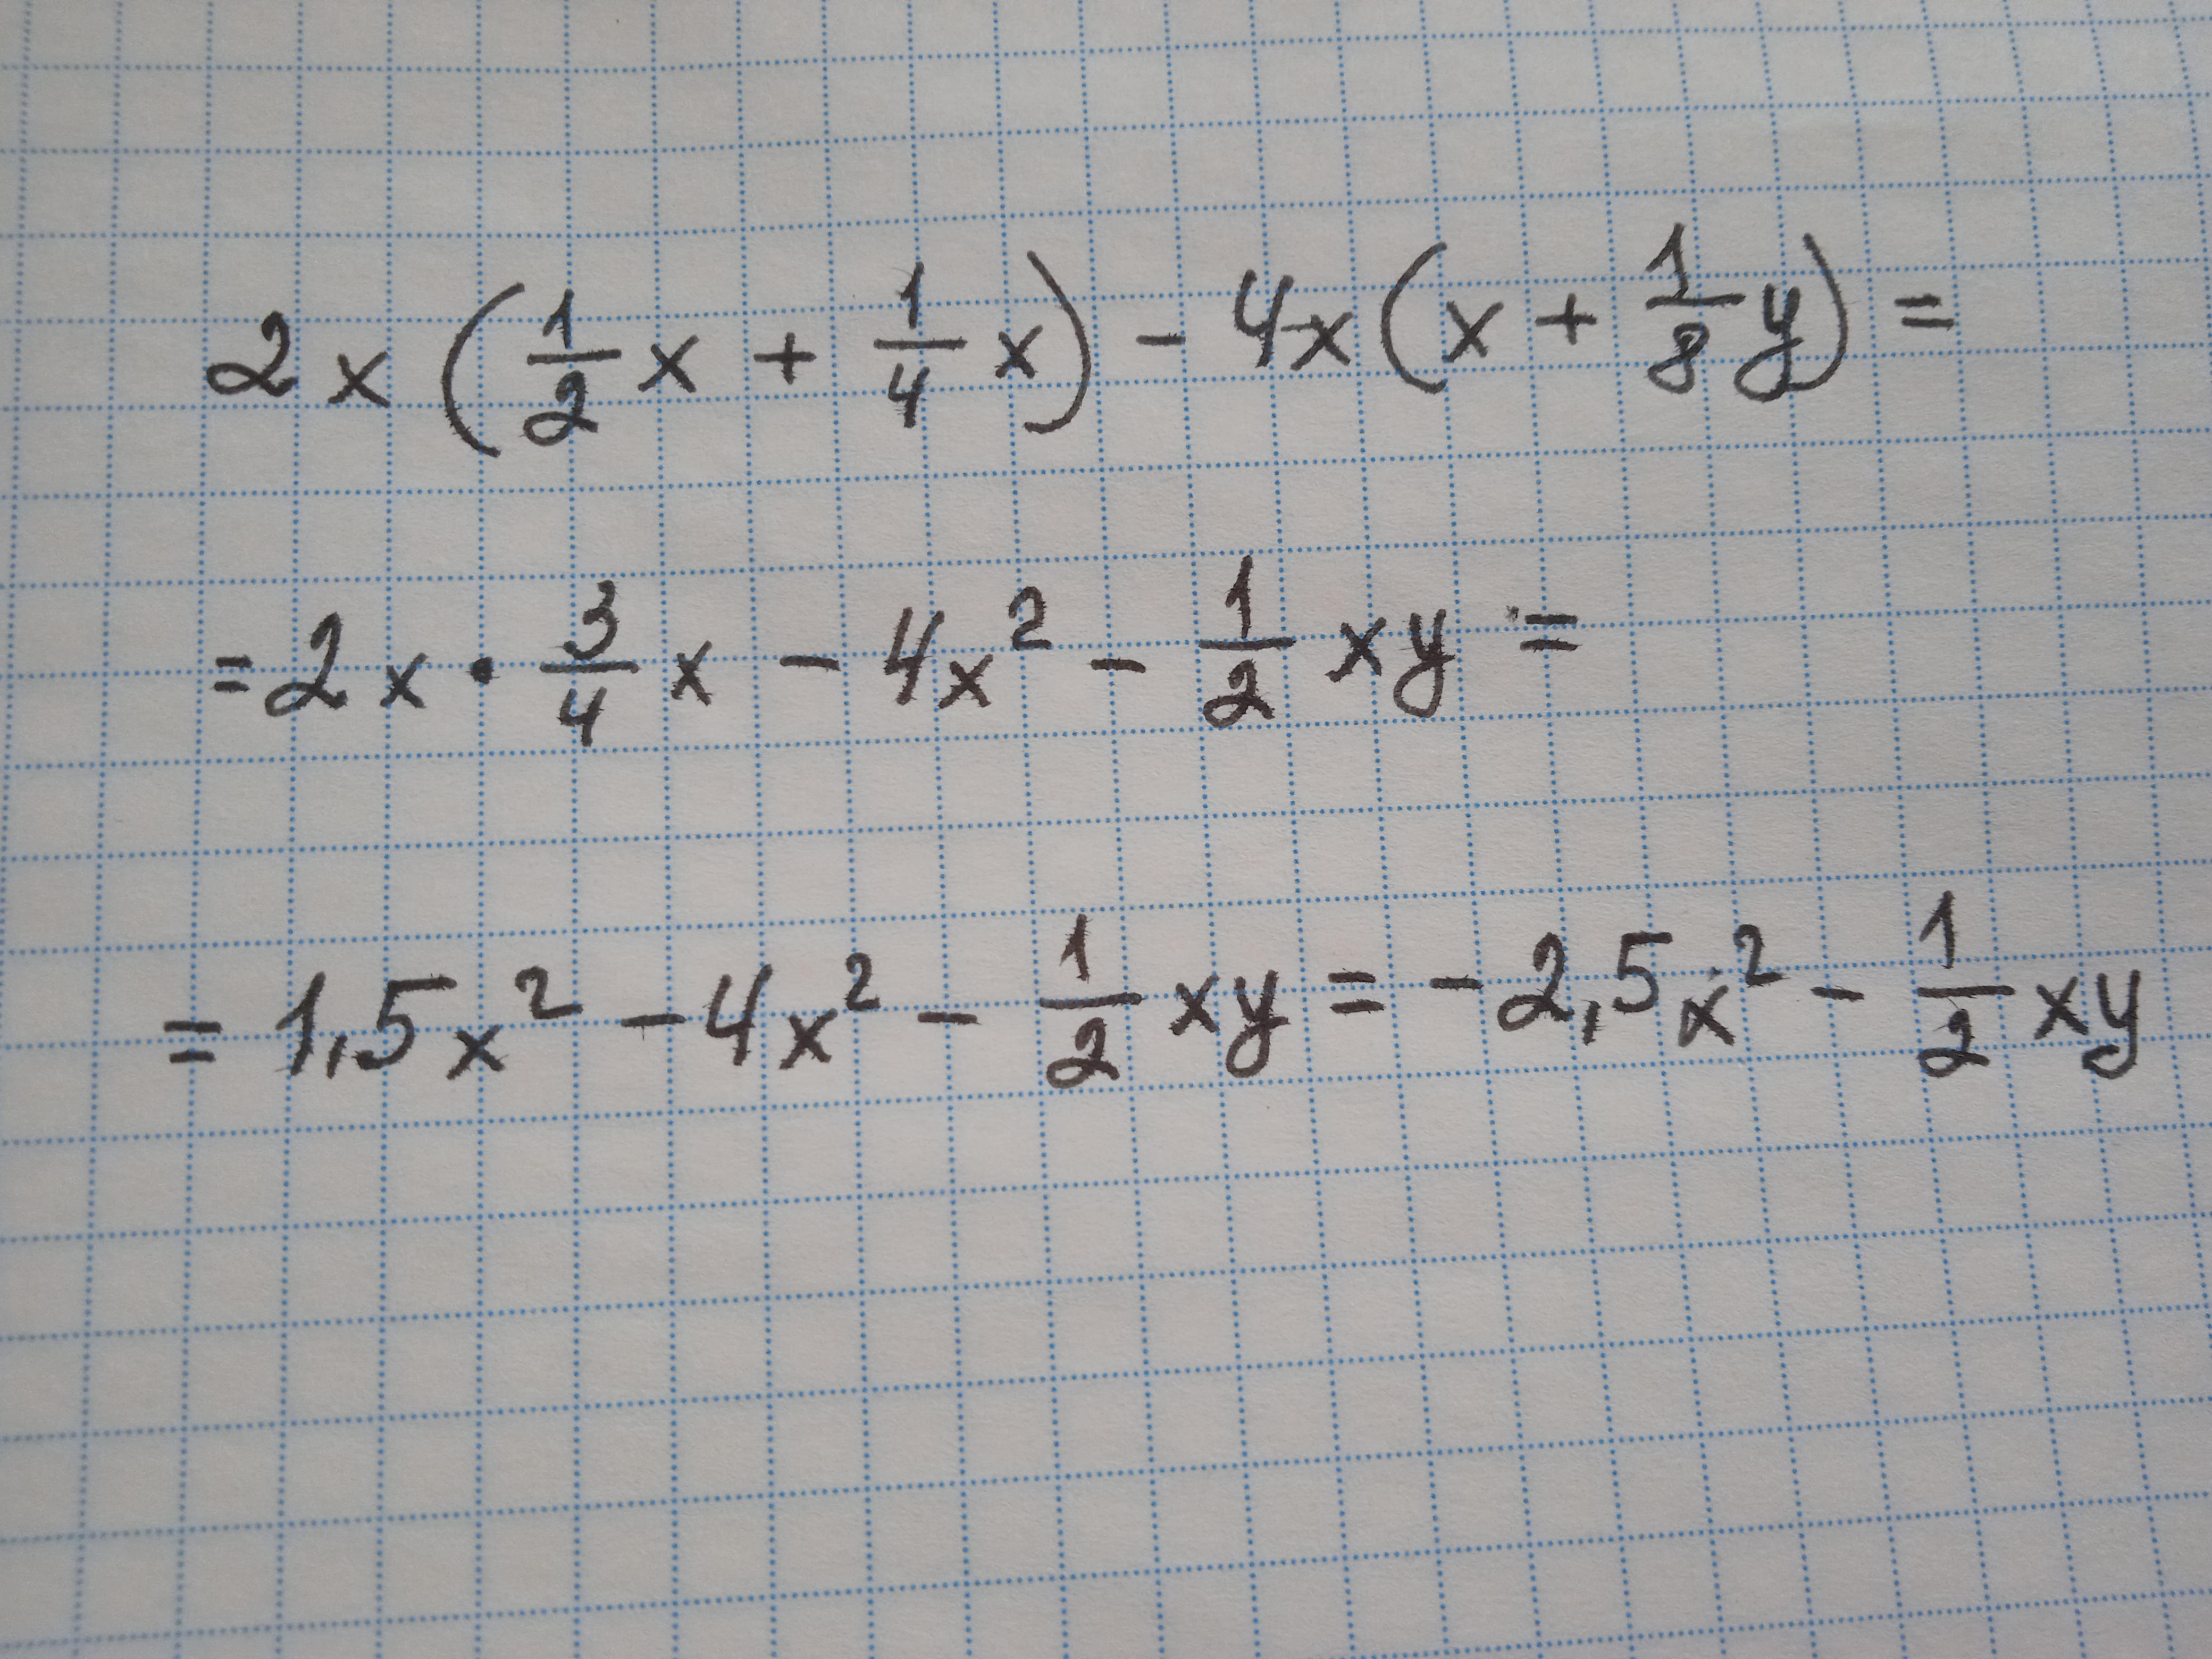 2x(1/2 x + 1/4 x) - 4x(x + 1/8 y) =
= 2x · 3/4 x - 4x² - 1/2 xy =
= 1,5x² - 4x² - 1/2 xy = -2,5x² - 1/2 xy